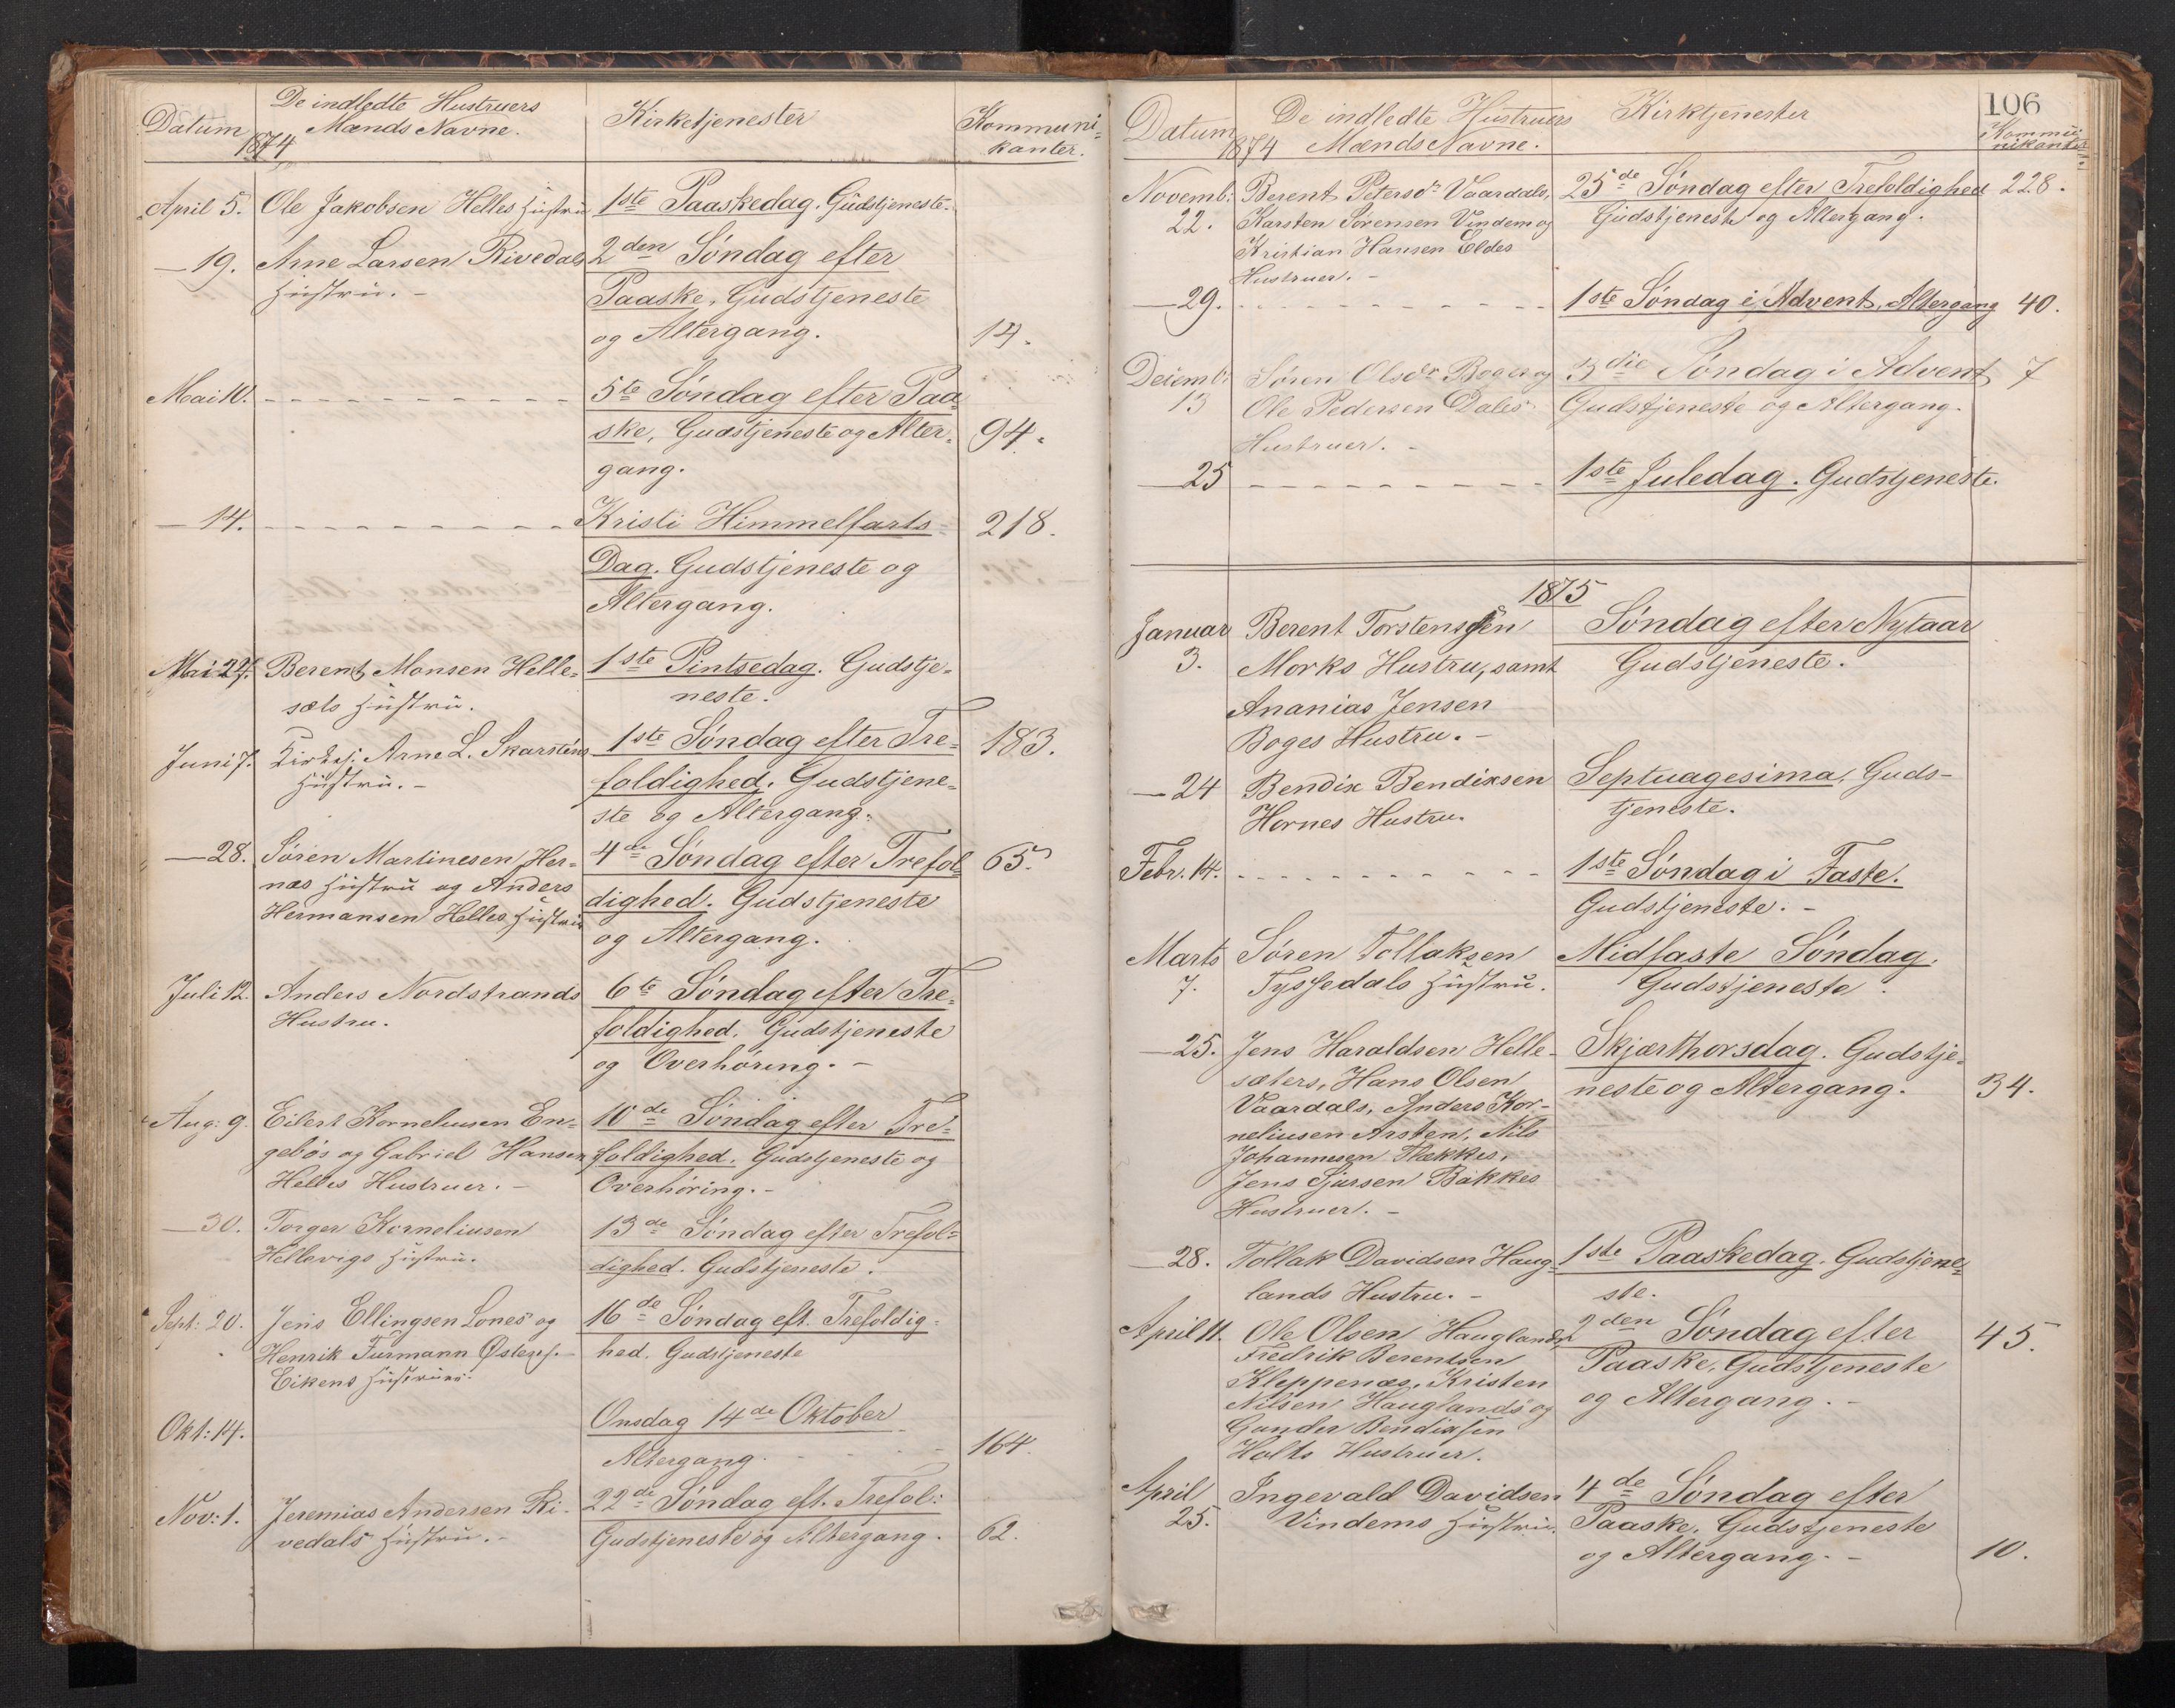 Datum
1874
De indledte Hustruers
Mænds Navne.
Kirketjenester
Kommuni-
kanter.
April 5. Ole Jakobsen Helles Hustru 1ste Paaskedag. Gudstjeneste.
— 19. Arne Larsen Rivedals 2den Søndag efter
Hustru. — Paaske, Gudstjeneste
og Altergang. 14.
Mai 10. - - - - - - - - - - 5te Søndag efter Paa-
ske, Gudstjeneste og Alter- 94.
gang.
— 14. - - - - - - - - - - Kristi Himmelfarts- 218.
Dag. Gudstjeneste og
Altergang.
Mai 24. Berent Monsen Helle- 1ste Pintsedag. Gudstje-
sæls Hustru. neste.
Juni 7. Kirkes. Arne L. Skarsteins 1ste Søndag efter Tre- 183.
Hustru. — foldighed. Gudstjene-
ste og Altergang.
— 28. Søren Martinesen Her- 4de Søndag efter Trefol- 65.
næs Hustru og Anders dighed. Gudstjeneste
Hermansen Helles Hustru og Altergang.
Juli 12. Anders Nordstrands 6te Søndag efter Tre-
Hustru. foldighed. Gudstjeneste
og Overhøring. —
Aug: 9. Eilert Korneliusen En- 10de Søndag efter Tre-
gebøs og Gabriel Hansen foldighed. Gudstjeneste og
Helles Hustruer. — Overhøring. —
— 30. Torger Korneliusen 13de Søndag efter Trefol-
Hellevigs Hustru. dighed. Gudstjeneste.
Sept: 20. Jens Ellingsen Lones og 16de Søndag eft. Trefoldig-
Henrik Furmann hed. Gudstjeneste
Eikens Hustruer.
Okt: 14. Onsdag 14de Oktober
Altergang. 164.
Nov: 1. Jeremias Andersen Ri- 22de Søndag eft. Trefol:
vedals Hustru. — Gudstjeneste og Altergang. 62.
106
Datum
1874
De indledte Hustruers
Mænds Navne.
Kirktjenester
Kommu-
nikanter
Novemb: Berent Petersdr Vaardals, 25de Søndag efter Trefoldighed 228.
22. Karsten Sørensen Vindem og Gudstjeneste og Altergang.
Kristian Hansen Eldes
Hustruer. —
— 29. - - - - - - - - - 1ste Søndag i Advent, Altergang 40.
Decemb: Søren Olsdr Boges og 3die Søndag i Advent 7
13 Ole Pedersen Dales Gudstjeneste og Altergang.
Hustruer. —
— 25 - - - - - - - - - 1ste Juledag. Gudstjeneste.
1875
Januar Berent Torstensøen Søndag efter Nytaar
3. Morks Hustru, samt Gudstjeneste.
Ananias Jensen
Boges Hustru. —
— 24 Bendix Bendixsen Septuagesima. Guds-
Hornes Hustru. tjeneste.
Febr. 14. - - - - - - - - - 1ste Søndag i Faste.
Gudstjeneste. —
Marts Søren Tollaksen Midfaste Søndag.
7. Tyssedals Hustru. Gudstjeneste.
— 25. Jens Haraldsen Helle- Skjærthorsdag. Gudstje-
sæters, Hans Olsen neste og Altergang. 34.
Vaardals, Anders Kor-
neliusen Arsten, Nils
Johannesen Flekkes,
Jens Sjursen Bakkes
Hustruer. —
— 28. Tollak Davidsen Haug- 1ste Paaskedag. Gudstjene-
lands Hustru. — ste.
April 11. Ole Olsen Hauglands, 2den Søndag efter 45.
Fredrik Berentsen Paaske. Gudstjeneste
Kleppenæs, Kristen og Altergang. —
Nilsen Hauglands og
Gunder Bendixsen
Holts Hustruer.
April Ingevald Davidsen 4de Søndag efter
25. Vindems Hustru. Paaske. Gudstjeneste
og Altergang. — 10.